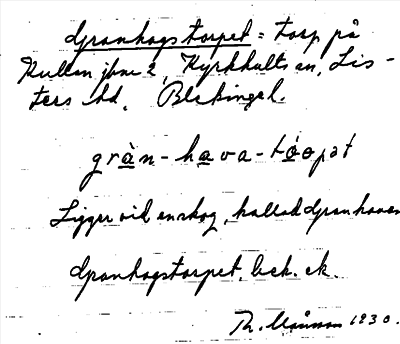 Granhagstorpet = torp på
Kullen jbnr 2, Kyrkhults sn, Lis-
ters hd, Blekinge l.
gràn-hava-tóopət
Ligger vid en skog, kallad Granhaven
Granhagstorpet, beck. ek.
Th. Månsson 1930.